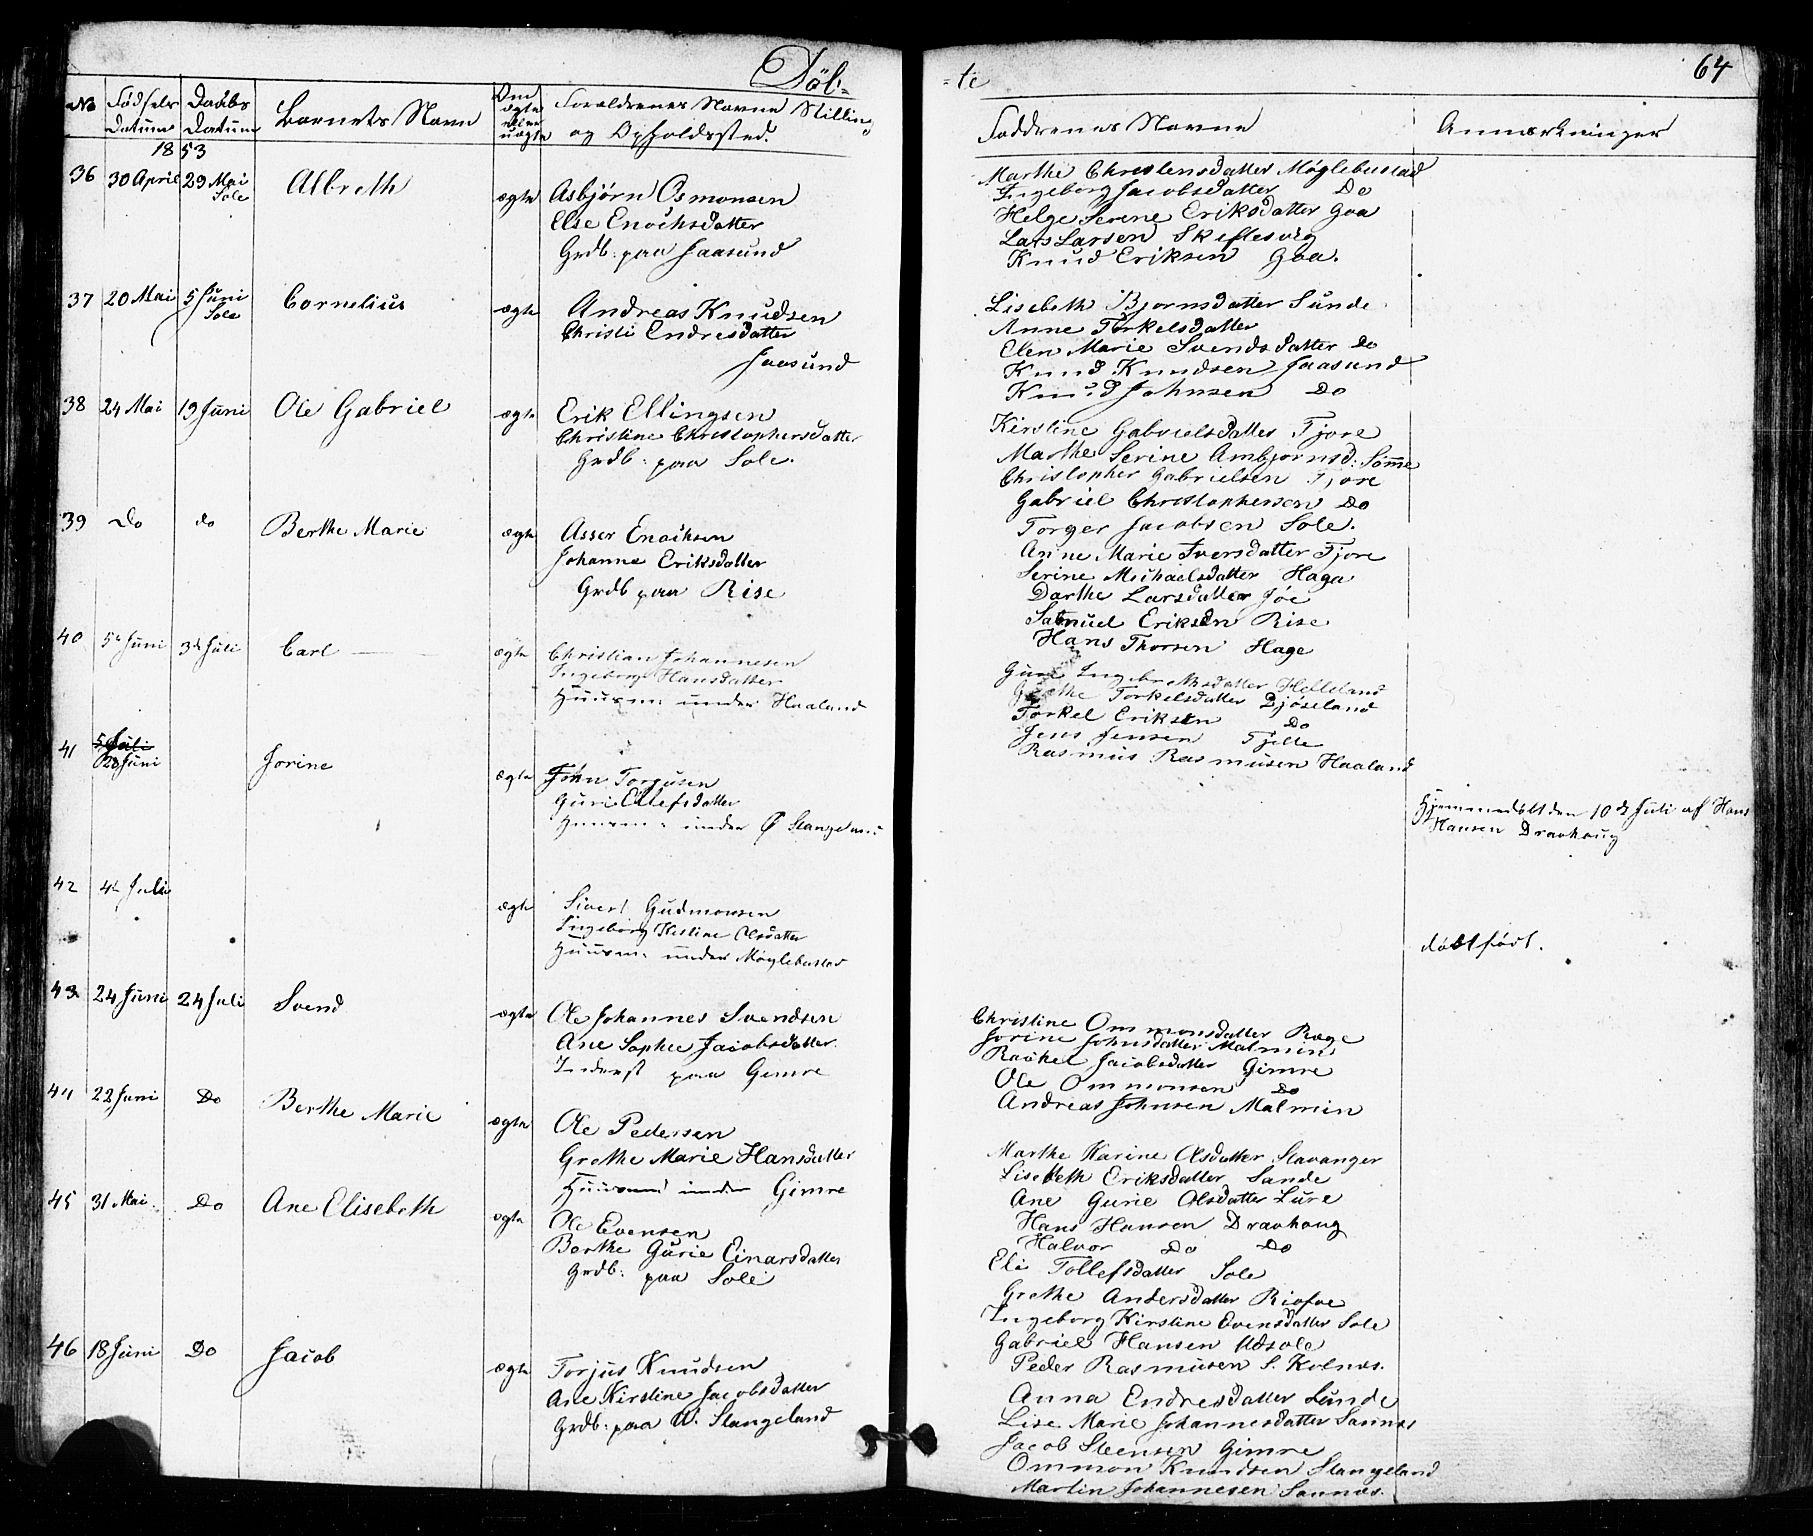 Döb-
No Fødsels Datum Daabs Datum Barnets Navn Om ægte eller uægte Forældrenes Navne Stilling og Opholdssted.
1853
36 30 April 29 Mai Sole Albreth ægte Asbjørn Osmonsen
Else Enochsdatter
Grdb: paa Jaasund
37 20 Mai 5 Juni Sole Cornelius ægte Andreas Knudsen
Christi Endresdatter
Jaasund
38 24 Mai 19 Juni Ole Gabriel ægte Erik Ellingsen
Christine Christophersdatter
Grdb: paa Sole.
39 Do do Berthe Marie ægte Asser Enochsen
Johanne Eriksdatter
Grdb paa Rise
40 5t Juni 3d Juli Carl ægte Christian Johannesen
Ingeborg Hansdatter
Huusm: under Haaland
41 5 Juli
28 Juni Jorine ægte John Torgusen
Guri Ellefsdatter
Huusm: under Ø Stangeland
42 4d Juli ægte Sivert Gudmonsen
Ingeborg Kistine Olsdatter
Huusm. under Møglebustad
43 24 Juni 24 Juli Svend ægte Ole Johannes Svendsen
Ane Sophie Jacobsdatter
Inderst paa Gimre
44 22 Juni Do Berthe Marie ægte Ole Pedersen
Grethe Marie Hansdatter
Huusmd under Gimre
45 31 Mai Do Ane Elisebeth ægte Ole Evensen
Berthe Gurie Einarsdatter
Grdb: paa Sole
46 18 Juni Do Jacob ægte Torjus Knudsen
Ane Kirstine Jacobsdatter
Grdb: paa W. Stangeland
-te
64
Faddrenes Navne Anmærkninger
Marthe Christensdatter Møglebustad
Ingeborg Jacobsdatter Do
Helge Serene Eriksdatter Goa
Lars Larsen Skiftesvig
Knud Eriksen Goa.
Lisebeth Bjornsdatter Sunde
Anne Torkelsdatter
Elen Marie Svendsdatter Do
Knud Knudsen Jaasund
Knud Johnsen Do
Kirstine Gabrielsdatter Tjore
Marthe Serine Ambjornsd: Sømme
Christopher Gabrielsen Tjore
Gabriel Christophersen Do
Torger Jacobsen Sole.
Anne Marie Iversdatter Tjore
Serine Michaelsdatter Haga
Darthe Larsdatter Joe
Samuel Eriksen Rise
Hans Thorsen Hage
Guri Ingebrethsdatter Helleland
Grethe Torkelsdatter Djøseland
Torkel Eriksen Do
Jens Jensen Tjelle
Rasmus Rasmusen Haaland
Hjemmedøbt den 10d Juli af Hans
Hansen Dravhoug
dødtfødt.
Christine Ommonsdatter Røge
Jorine Johnsdatter Malmin
Rachel Jacobsdatter Gimre
Ole Ommonsen Do
Andreas Johnsen Malmin
Marthe Karine Olsdatter Stavanger
Lisebeth Eriksdatter Sande
Ane Gurie Olsdatter Lure
Hans Hansen Dravhoug
Halvor Do Do
Eli Tollefsdatter Sole
Grethe Andersdatter
Ingeborg Kirstine Evensdatter Sole
Gabriel Hansen Udsole
Peder Rasmusen S. Kolnes.
Anna Endresdatter Sunde
Lise Marie Johannesdatter Sannes
Jacob Steensen Gimre
Ommon Knudsen Stangeland
Martin Johannesen Sannes.